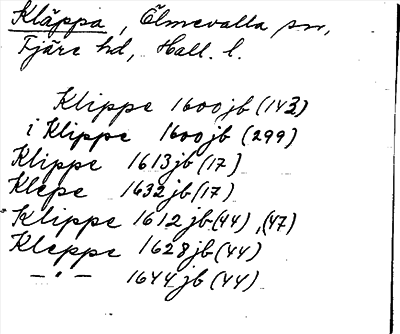 Kläppa, Ölmevalla sn,
Fjäre hd, Hall. l.
Klippe 1600 jb (143)
i Klippe 1600 jb (299)
Klippe 1613 jb (17)
Klepe 1632 jb (17)
Klippe 1612 jb (44), (47)
Kleppe 1628 jb (44)
– " – 1644 jb (44)